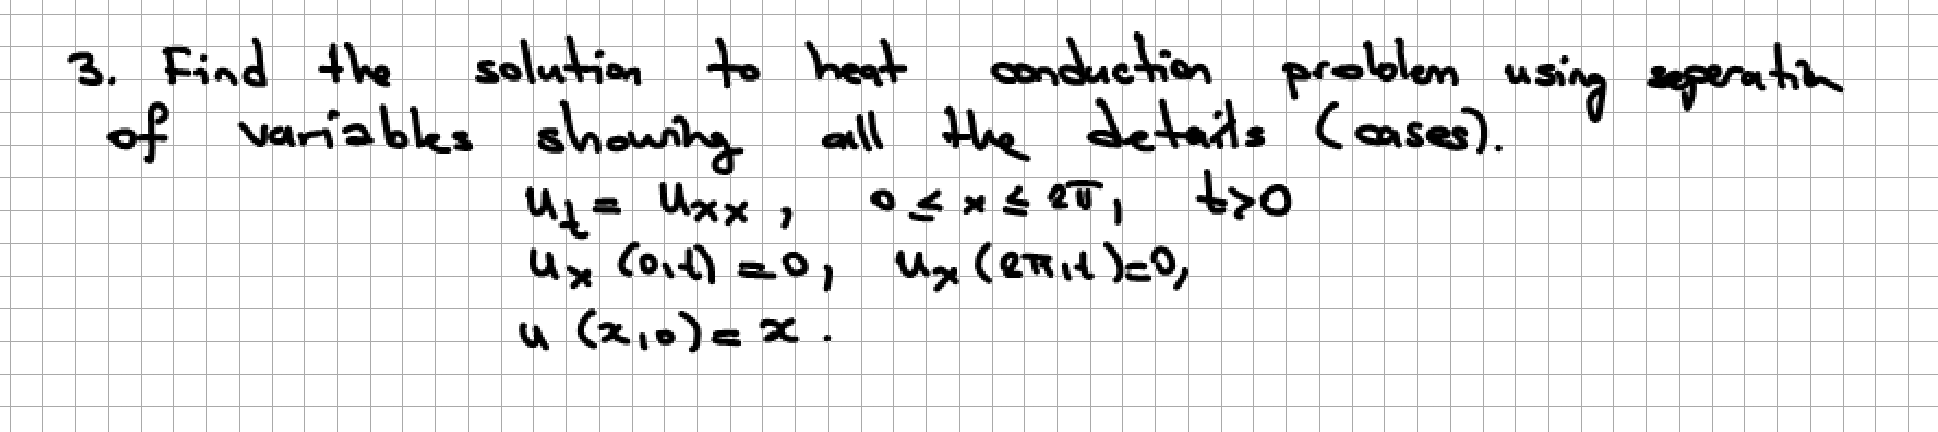 3. Find the solution to heat conduction problem using seperation
of variables showing all the details (cases).
u_t = u_xx, 0 ≤ x ≤ 2π, t>0
u_x (0,t) = 0, u_x (2π,t)=0,
u (x,0) = x.